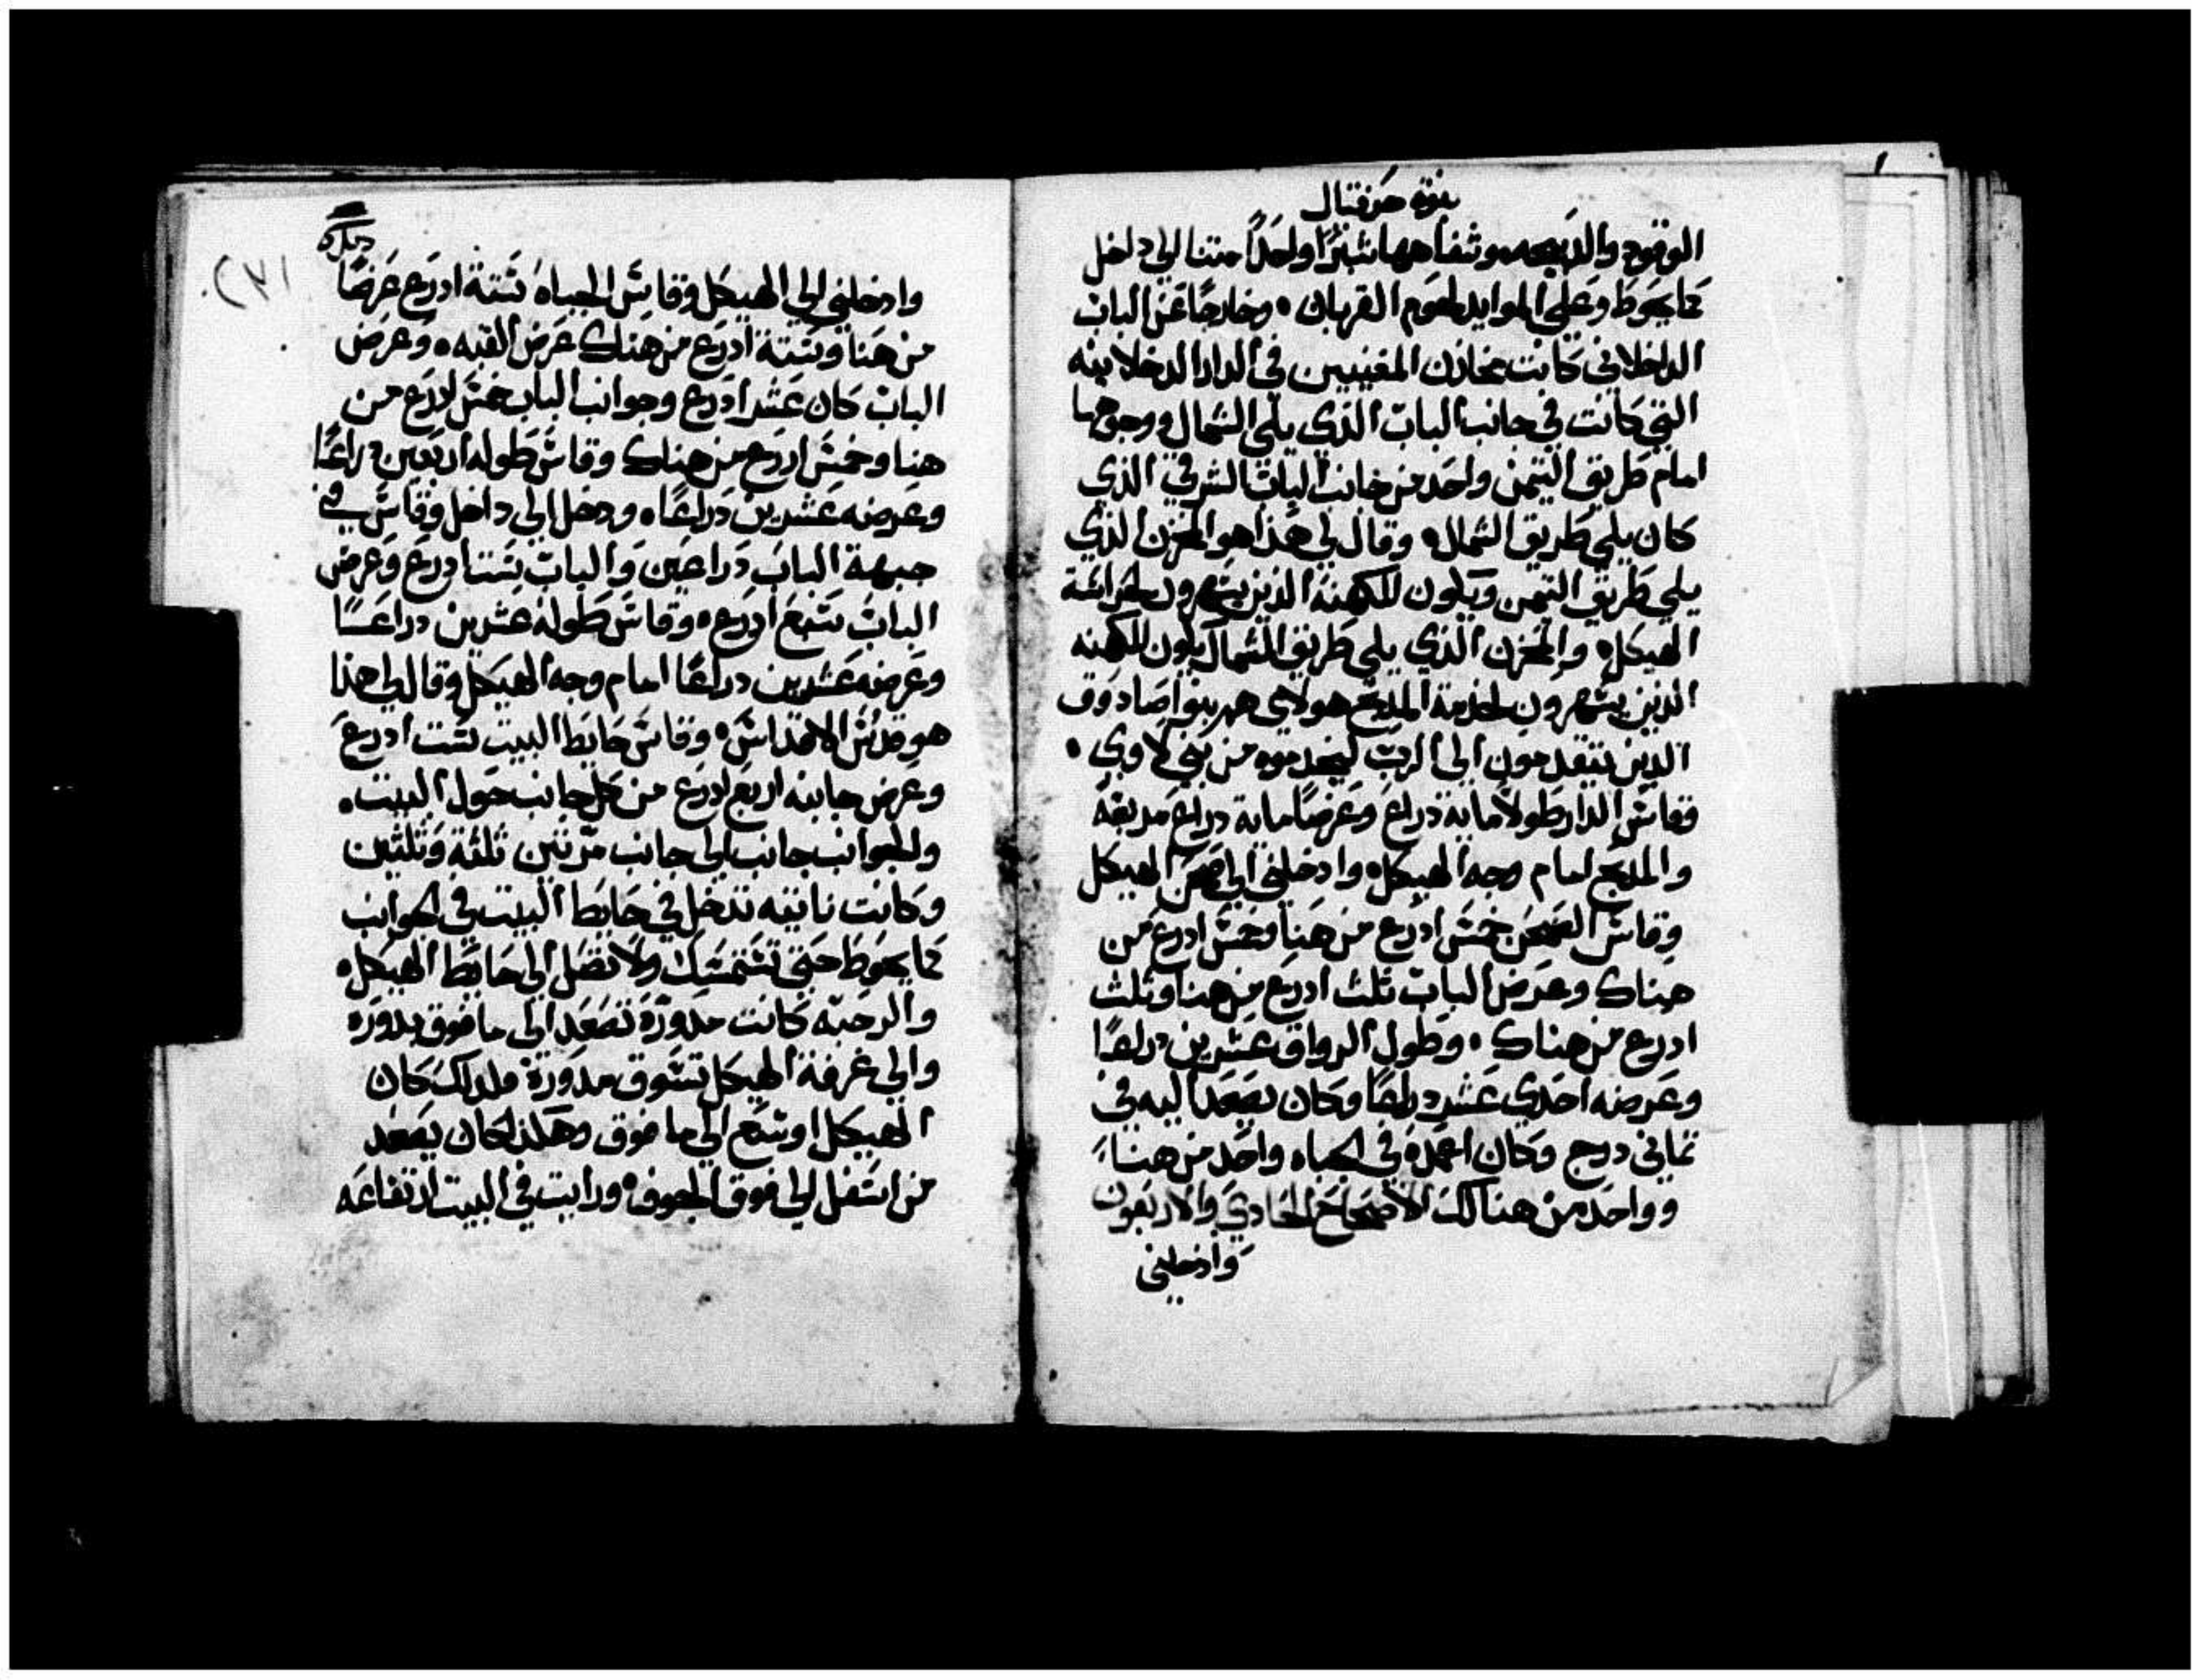 نبوة حزقيال
الوقود والدبيحه وشفاهها شبرًا واحدًا منتنا الي داخل
كما يحوط وعلي الموايد لحوم القربان ۰ وخارجًا عن الباب
الداخلاني كانت مخازن المغنيين في الدار الدخلانيه
التي كانت في جانب الباب الذي يلي الشمال ووجوها
امام طريق التيمن واحد من جانب الباب الشرقي الذي
كان يلي طريق الشمال۰ وقال لي هذا هو المخزن الذي
يلي طريق التيمن ويكون للكهنة الذين يسهرون لحراسة
الهيكل۰ والمخزن الذي يلي طريق الشمال يكون للكهنه
الذين يسهرون لخدمة المدبح هولاي هم بنوا صادوق
الدين يتقدمون الي الرب ليخدموه من بني لاوي ۰
فقاس الدار طولاً ماية دراع وعرضًا ماية دراع مربعة
والمدبح امام وجه الهيكل۰ وادخلني الي صحن الهيكل
وقاس الصحن خمس ادرع من هنا وخمس ادرع من
هناك وعرض الباب ثلث ادرع من هنا وثلث
ادرع من هناك ۰ وطول الرواق عشرين دراعًا
وعرضه احدي عشر دراعًا وكان يصعد اليه في
ثماني درج وكان اعمدة في الجباه واحد من هنا
وواحد من هنالك الأصحاح الحادي والاربعون
وادخلني
وادخلني الي الهيكل وقاس الجباه ستة ادرع عرضًا
من هنا وستة ادرع من هناك عرض القبه ۰ وعرض
الباب كان عشر ادرع وجوانب الباب خمس ادرع من
هنا وخمس ادرع من هناك وقاس طوله اربعين دراعًا
وعرضه عشرين دراعًا ۰ ودخل الي داخل وقاس في
جبهة الباب دراعين والباب ستا ادرع وعرض
الباب سبع ادرع ۰ وقاس طوله عشرين دراعًا
وعرضه عشرين دراعًا امام وجه الهيكل وقال لي هذا
هو قدس الاقداس۰ وقاس حايط البيت ست ادرع
وعرض جانبه اربع ادرع من كل جانب حول البيت ۰
والجوانب جانب الي جانب مرتين ثلثة وثلثين
وكانت ناتيه تدخل في حايط البيت في الجوانب
كما يحوط حتي تستمسك ولا تصل الي حايط الهيكل۰
والرحبه كانت مدورة تصعد الي ما فوق بدوره
والي غرفة الهيكل تسوق مدورة ولدلك كان
الهيكل اوسع الي ما فوق وهكذا كان يصعد
من اسفل الي فوق الجوف۰ ورايت في البيت ارتفاعه